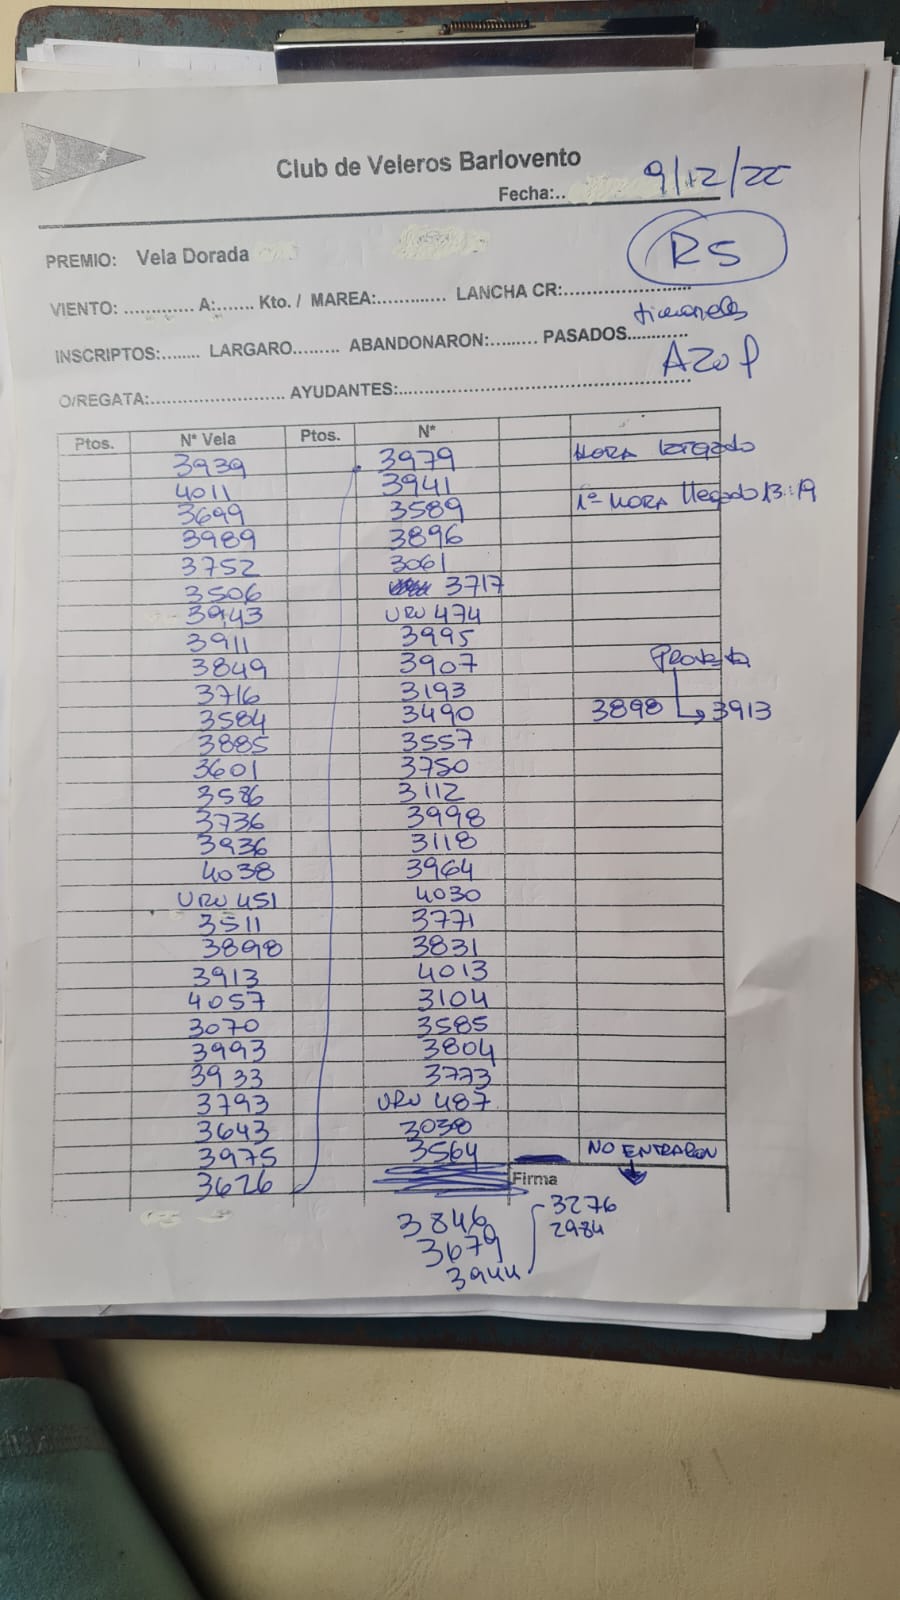 Club de Veleros Barlovento
Fecha:.. 9/12/22
PREMIO: Vela Dorada
R5
VIENTO: ............ A:....... Kto. / MAREA:............ LANCHA CR:......................
timoneles
INSCRIPTOS:........ LARGARO......... ABANDONARON:......... PASADOS...........
O/REGATA:......................... AYUDANTES:......................................................
Ptos. N° Vela Ptos. N°
3939 3979 HORA largado
4011 3941
3699 3589 1º HORA llegado 13:19
3989 3896
3752 3061
3506 3717
3943 URU 474
3911 3995
3849 3907 Protesta
3716 3193
3584 3490 3898 3913
3885 3557
3601 3750
3586 3112
3736 3998
3936 3118
4038 3964
URU 451 4030
3511 3771
3898 3831
3913 4013
4057 3104
3070 3585
3993 3804
3933 3773
3793 URU 487
3643 3038
3975 3564 NO ENTRARON
3626 Firma
3846 3276
3679 2984
3944